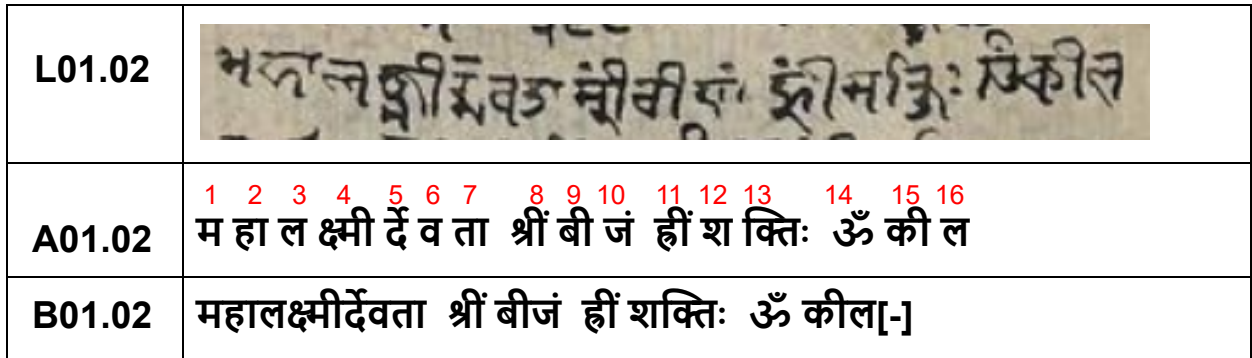 L01.02
महालक्ष्मीर्देवता श्रीं बीजं ह्रीं शक्तिः ॐ कील
1 2 3 4 5 6 7 8 9 10 11 12 13 14 15 16
A01.02 म हा ल क्ष्मी र्दे व ता श्रीं बी जं ह्रीं श क्तिः ॐ की ल
B01.02 महालक्ष्मीर्देवता श्रीं बीजं ह्रीं शक्तिः ॐ कील[-]